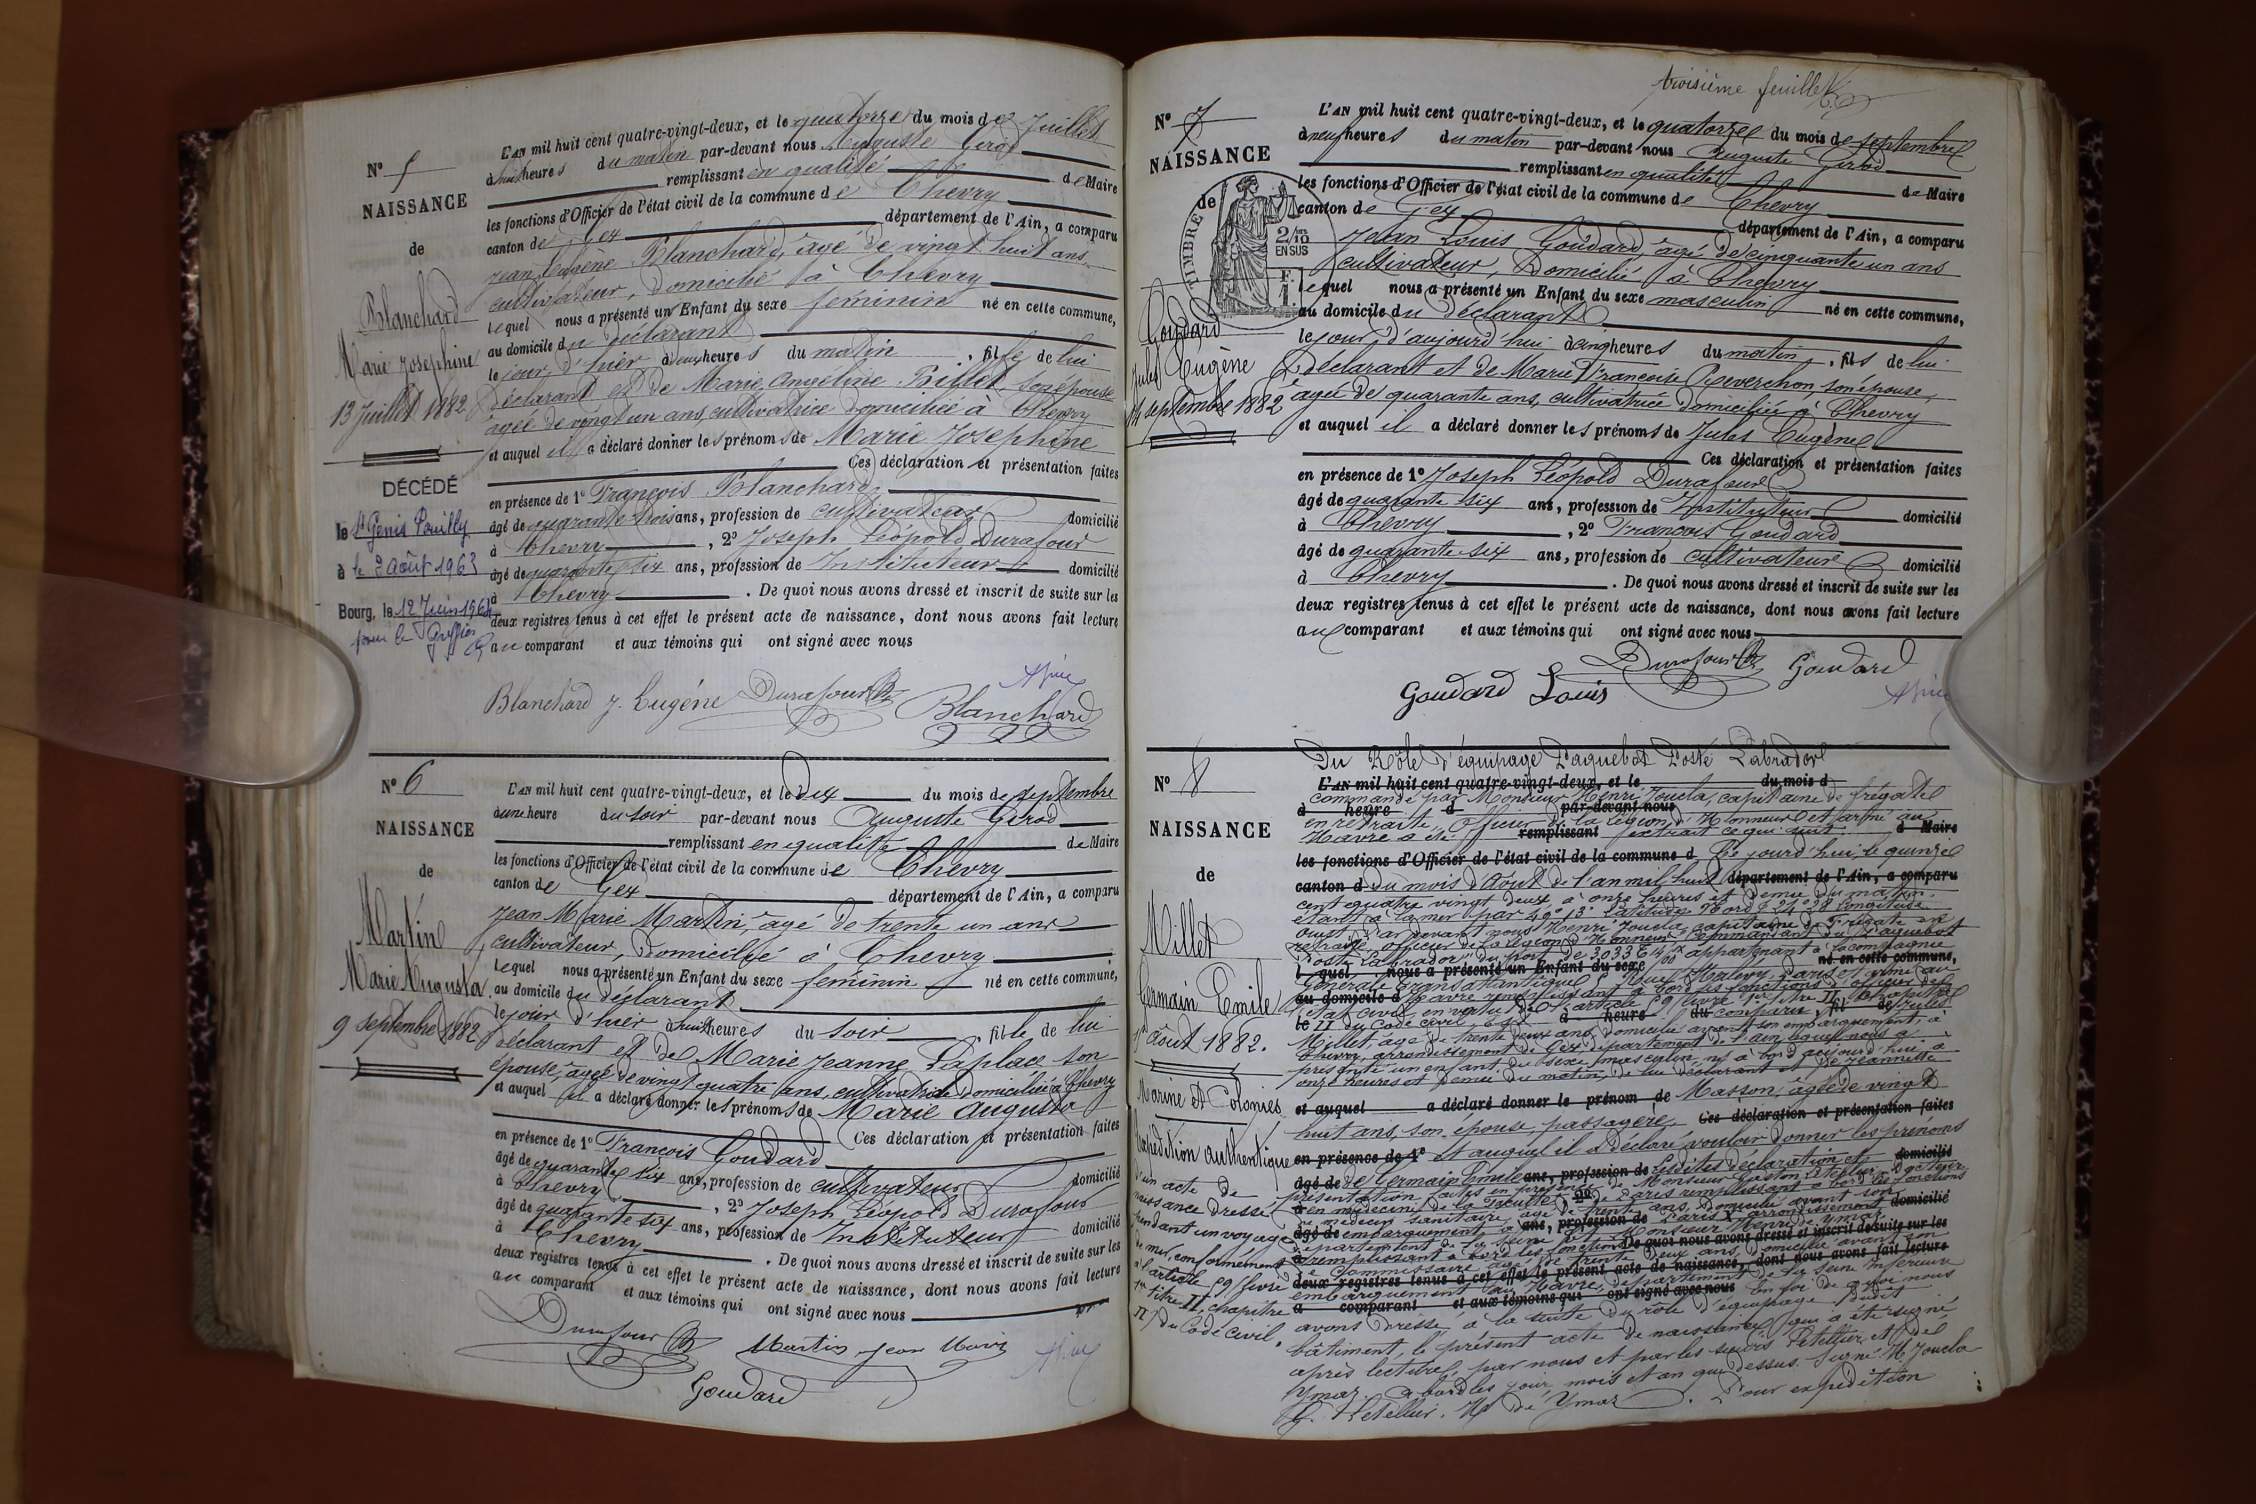 N° 5
NAISSANCE
de
Blanchard
Marie Josephine
13 Juillet 1882
DÉCÉDÉ
le St Genis Pouilly
à le 2 Août 1963
Bourg, le 12 Juin 1964
pour le Greffier
L'AN mil huit cent quatre-vingt-deux, et le quatorze du mois de Juillet
à huit heures du matin par-devant nous Auguste Girod
remplissant en qualité de Maire
les fonctions d'Officier de l'état civil de la commune de Chevry
canton de Gex département de l'Ain, a comparu
Jean Eugène Blanchard, âgé de vingt huit ans
cultivateur, domicilié à Chevry
lequel nous a présenté un Enfant du sexe féminin né en cette commune,
au domicile du déclarant
le jour d'hier à deux heures du matin, fille de lui
déclarant et de Marie Angéline Billet son épouse
âgée de vingt un ans, cultivatrice domiciliée à Chevry
et auquel il a déclaré donner les prénoms de Marie Josephine
Ces déclaration et présentation faites
en présence de 1° François Blanchard,
âgé de quarante trois ans, profession de cultivateur domicilié
à Chevry, 2° Joseph Léopold Durafour
âgé de quarante six ans, profession de Instituteur domicilié
à Chevry. De quoi nous avons dressé et inscrit de suite sur les
deux registres tenus à cet effet le présent acte de naissance, dont nous avons fait lecture
au comparant et aux témoins qui ont signé avec nous
Blanchard J. Eugéne Durafour Blanchard
N° 6
NAISSANCE
de
Martin
Marie Augusta
9 septembre 1882
L'AN mil huit cent quatre-vingt-deux, et le dix du mois de septembre
à une heure du soir par-devant nous Auguste Girod
remplissant en qualité de Maire
les fonctions d'Officier de l'état civil de la commune de Chevry
canton de Gex département de l'Ain, a comparu
Jean Marie Martin, âgé de trente un ans
cultivateur, domicilié à Chevry
lequel nous a présenté un Enfant du sexe féminin né en cette commune,
au domicile du déclarant
le jour d'hier à huit heures du soir, fille de lui
déclarant et de Marie Jeanne Laplace son
épouse, âgée de vingt quatre ans, cultivatrice domiciliée à Chevry
et auquel il a déclaré donner les prénoms de Marie Augusta
Ces déclaration et présentation faites
en présence de 1° François Goudard
âgé de quarante six ans, profession de cultivateur domicilié
à Chevry, 2° Joseph Léopold Durafour
âgé de quarante six ans, profession de Instituteur domicilié
à Chevry. De quoi nous avons dressé et inscrit de suite sur les
deux registres tenus à cet effet le présent acte de naissance, dont nous avons fait lecture
au comparant et aux témoins qui ont signé avec nous
Durafour Martin Jean Marie
Goudard
troisième feuillet
N° 7
NAISSANCE
de
TIMBRE
2/10
EN SUS
Goudard
Jules Eugène
14 septembre 1882
L'AN mil huit cent quatre-vingt-deux, et le quatorze du mois de septembre
à neuf heures du matin par-devant nous Auguste Girod
remplissant en qualité de Maire
les fonctions d'Officier de l'état civil de la commune de Chevry
canton de Gex département de l'Ain, a comparu
Jean Louis Goudard, âgé de cinquante un ans
cultivateur, domicilié à Chevry
lequel nous a présenté un Enfant du sexe masculin né en cette commune,
au domicile du déclarant
le jour d'aujourd'hui à cinq heures du matin, fils de lui
déclarant et de Marie Françoise Reverchon, son épouse,
âgée de quarante ans, cultivatrice domiciliée à Chevry
et auquel il a déclaré donner les prénoms de Jules Eugène
Ces déclaration et présentation faites
en présence de 1° Joseph Léopold Durafour
âgé de quarante six ans, profession de Instituteur domicilié
à Chevry, 2° François Goudard
âgé de quarante six ans, profession de cultivateur domicilié
à Chevry. De quoi nous avons dressé et inscrit de suite sur les
deux registres tenus à cet effet le présent acte de naissance, dont nous avons fait lecture
au comparant et aux témoins qui ont signé avec nous
Durafour Goudard
Goudard Louis
N° 8
NAISSANCE
de
Millet
Germain Emile
15 août 1882.
Marine et Colonies
Expédition authentique
d'un acte de
naissance dressé
pendant un voyage
de mer, conformément
à l'article 59, livre
1er titre II, chapitre
II, du Code civil.
Du Rôle d'équipage Paquebot Poste Labrador
L'AN mil huit cent quatre-vingt-deux, et le du mois d
commandé par Monsieur Henri Joucla, capitaine de frégate
à heure d par-devant nous
en retraite, Officier de la Légion d'Honneur et armé au
Havre a été remplissant extrait ce qui suit: d Maire
les fonctions d'Officier de l'état civil de la commune d Ce jourd'hui, le quinze
canton d du mois d'Août de l'an mil huit département de l'Ain, a comparu
cent quatre vingt deux à onze heures et demie du matin,
étant à la mer par 49° 13' latitude Nord & 24° 28' longitude
ouest, par devant nous Henri Joucla, capitaine de Frégate en
retraite, officier de la Légion d'Honneur, commandant du Paquebot
Poste "Labrador" du port de appartenant à la compagnie
l quel nous a présenté un Enfant du sexe né en cette commune,
Générale Transatlantique, Paris et armé au
au domicile d Havre remplissant à bord les fonctions d'officier de l'
Etat civil en vertu de l'article 59 livre 1er titre II, chapitre
le II du Code civil, à heure du comparu, fil de
Millet, âgé de trente deux ans, domicilié avant son embarquement, à
Chevry, arrondissement de Gex, département de l'ain, lequel nous a
présenté un enfant du sexe masculin, né à bord aujourd'hui à
onze heures et demie du matin, de lui déclarant et de Jeannette
et auquel a déclaré donner le prénom de Masson, âgée de vingt
Ces déclaration et présentation faites
huit ans, son épouse, passagère,
en présence de 1° et auquel il a déclaré vouloir donner les prénoms domicilié
âgé de de Germain Emile ans, profession de Lesdites déclaration et
présentation faites en présence de Monsieur Gaston Letellier, Docteur
à en médecine de la Faculté de Paris remplissant à bord les fonctions 2°
de médecin sanitaire, âgé de trente ans, domicilié avant son
âgé de embarquement à ans, profession de Paris, arrondissement domicilié
département de la Seine et Monsieur Henri de Ymar
à remplissant à bord les fonctions De quoi nous avons dressé et inscrit de suite sur les
de Commissaire, âgé de trente deux ans, domicilié avant son
deux registres tenus à cet effet le présent acte de naissance, dont nous avons fait lecture
embarquement au Havre, département de la Seine Inférieure
a comparant et aux témoins qui ont signé avec nous En foi de quoi nous
avons dressé à la suite du rôle d'équipage dudit
bâtiment, le présent acte de naissance qui a été signé,
après lecture, par nous et par les sieurs Letellier et de
Ymar. à bord les jour, mois et an que dessus. Signé H. Joucla
G. Letellier. H. de Ymar. Pour expédition